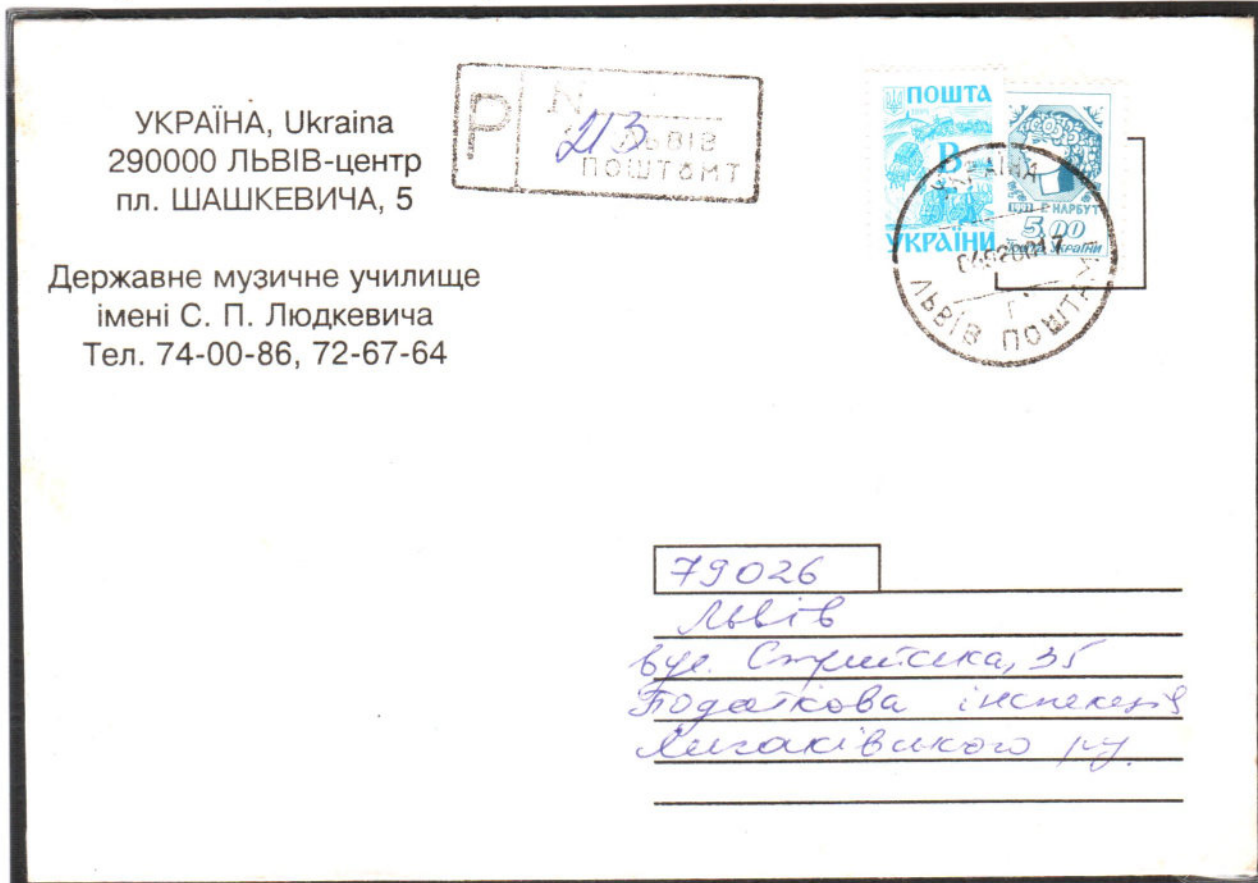 УКРАЇНА, Ukraina
290000 ЛЬВІВ-центр
пл. ШАШКЕВИЧА, 5
Державне музичне училище
імені С. П. Людкевича
Тел. 74-00-86, 72-67-64
Р
N 213
ЛЬВІВ
ПОШТАМТ
ПОШТА
В
УКРАЇНИ
Г. НАРБУТ
5.00
Пошта України
УКРАЇНА
ЛЬВІВ ПОШТАМТ
Г
79026
Львів
вул. Стрийська, 35
Податкова інспекція
Личаківського р-ну.